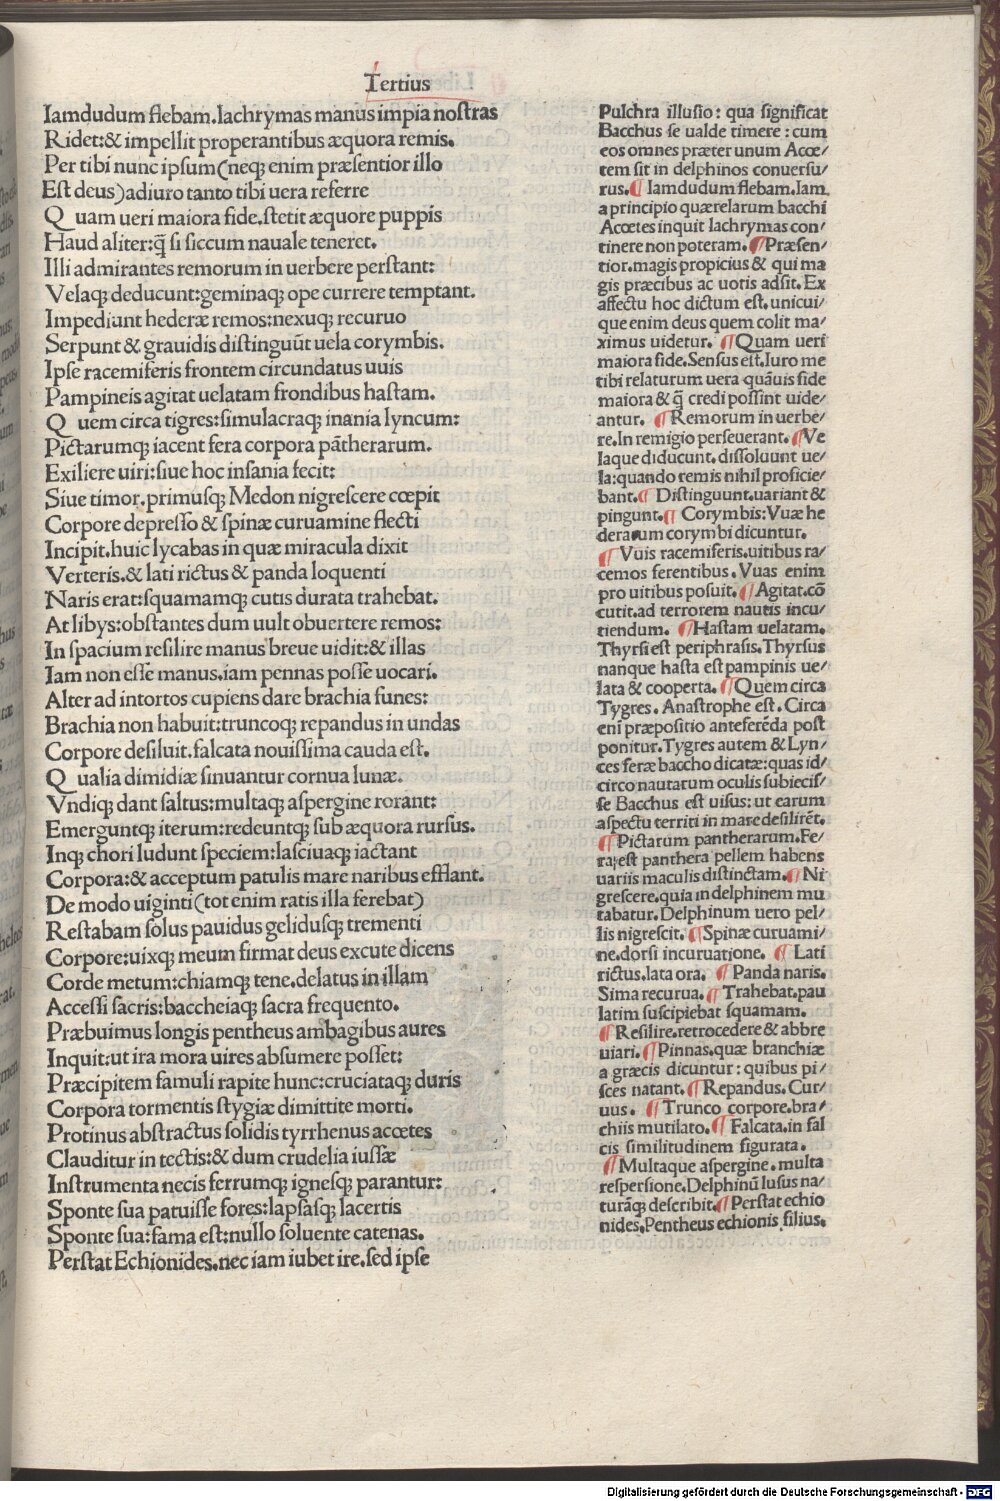 Tertius
Iamdudum flebam.lachrymas manus impia nostras
Ridet:& impellit properantibus æquora remis.
Per tibi nunc ipsum(neq; enim præsentior illo
Est deus)adiuro tanto tibi uera referre
Q uam ueri maiora fide.stetit æquore puppis
Haud aliter:q̃ si siccum nauale teneret.
Illi admirantes remorum in uerbere perstant:
Velaq; deducunt:geminaq; ope currere temptant.
Impediunt hederæ remos:nexuq; recuruo
Serpunt & grauidis distinguūt uela corymbis.
Ipse racemiferis frontem circundatus uuis
Pampineis agitat uelatam frondibus hastam.
Q uem circa tigres:simulacraq; inania lyncum:
Pictarumq; iacent fera corpora pātherarum.
Exiliere uiri:siue hoc insania fecit:
Siue timor.primusq; Medon nigrescere cœpit
Corpore depresso & spinæ curuamine flecti
Incipit.huic lycabas in quæ miracula dixit
Verteris.& lati rictus & panda loquenti
Naris erat:squamamq; cutis durata trahebat.
At libys:obstantes dum uult obuertere remos:
In spacium resilire manus breue uidit:& illas
Iam non esse manus.iam pennas posse uocari.
Alter ad intortos cupiens dare brachia funes:
Brachia non habuit:truncoq; repandus in undas
Corpore desiluit.falcata nouissima cauda est.
Q ualia dimidiæ sinuantur cornua lunæ.
Vndiq; dant saltus:multaq; aspergine rorant:
Emerguntq; iterum:redeuntq; sub æquora rursus.
Inq; chori ludunt speciem:lasciuaq; iactant
Corpora:& acceptum patulis mare naribus efflant.
De modo uiginti(tot enim ratis illa ferebat)
Restabam solus pauidus gelidusq; trementi
Corpore:uixq; meum firmat deus excute dicens
Corde metum:chiamq; tene.delatus in illam
Accessi sacris:baccheiaq; sacra frequento.
Præbuimus longis pentheus ambagibus aures
Inquit:ut ira mora uires absumere posset:
Præcipitem famuli rapite hunc:cruciataq; duris
Corpora tormentis stygiæ dimittite morti.
Protinus abstractus solidis tyrrhenus acœtes
Clauditur in tectis:& dum crudelia iussæ
Instrumenta necis ferrumq; ignesq; parantur:
Sponte sua patuisse fores:lapsasq; lacertis
Sponte sua:fama est:nullo soluente catenas.
Perstat Echionides.nec iam iubet ire.sed ipse
Pulchra illusio: qua significat
Bacchus se ualde timere: cum
eos omnes præter unum Acœ/
tem sit in delphinos conuersu/
rus.¶ Iamdudum flebam.Iam
a principio quærelarum bacchi
Acœtes inquit lachrymas con/
tinere non poteram.¶Præsen/
tior.magis propicius & qui ma
gis præcibus ac uotis adsit.Ex
affectu hoc dictum est.unicui/
que enim deus quem colit ma/
ximus uidetur. ¶Quam ueri
maiora fide.Sensus est.Iuro me
tibi relaturum uera quāuis fide
maiora & q̃ credi possint uide/
antur. ¶Remorum in uerbe/
re.In remigio perseuerant.¶Ve
laque diducunt.dissoluunt ue/
la:quando remis nihil proficie/
bant.¶ Distinguunt.uariant &
pingunt.¶ Corymbis:Vuæ he
derarum corymbi dicuntur.
¶ Vuis racemiferis.uitibus ra/
cemos ferentibus.Vuas enim
pro uitibus posuit.¶Agitat.cō
cutit.ad terrorem nautis incu/
tiendum. ¶Hastam uelatam.
Thyrsi est periphrasis.Thyrsus
nanque hasta est pampinis ue/
lata & cooperta.¶Quem circa
Tygres. Anastrophe est. Circa
eni præpositio anteferēda post
ponitur.Tygres autem & Lyn/
ces feræ baccho dicatæ:quas id/
circo nautarum oculis subiecis/
se Bacchus est uisus:ut earum
aspectu territi in mare desilirēt.
¶Pictarum pantherarum.Fe/
ra;est panthera pellem habens
uariis maculis distinctam.¶ Ni
grescere.quia in delphinem mu
tabatur.Delphinum uero pel/
lis nigrescit.¶Spinæ curuami/
ne.dorsi incuruatione. ¶ Lati
rictus.lata ora. ¶ Panda naris.
Sima recurua.¶ Trahebat.pau
latim suscipiebat squamam.
¶Resilire.retrocedere & abbre
uiari.¶Pinnas.quæ branchiæ
a græcis dicuntur: quibus pi/
sces natant.¶Repandus. Cur/
uus. ¶Trunco corpore.bra/
chiis mutilato.¶Falcata.in fal
cis similitudinem figurata.
¶Multaque aspergine.multa
respersione.Delphinū lusus na/
turāq; describit.¶Perstat echio
nides.Pentheus echionis filius.
Digitalisierung gefördert durch die Deutsche Forschungsgemeinschaft - DFG